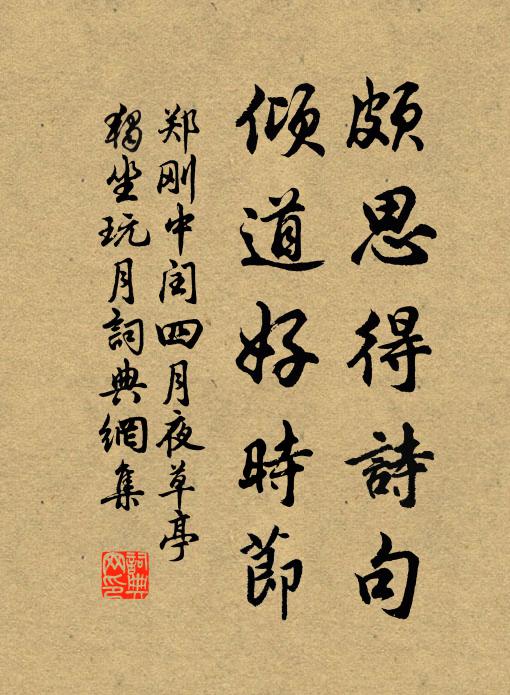 頗思得詩句
傾道好時節
郑刚中闰四月夜草亭
獨坐玩月詞典網集
詞典網印